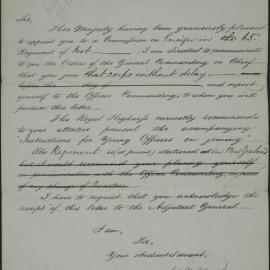 Sir,
Her Majesty having been graciously pleased
to appoint you to a Commission as Ensign in the 65.
Regiment of Foot I am directed to communicate
to you the Orders of the General Commanding in Chief
that you join that corps without delay
before the day of and report
yourself to the Officer Commanding, to whom you will
produce this letter.
His Royal Highness earnestly recommends
to your attentive perusal the accompanying
"Instructions for Young Officers on joining"
The Regiment is stationed in New Zealand
but I would recommend your placing yourself
in communication with the Officer Commanding, in case
of any change of Quarters.
I have to request that you acknowledge the
receipt of this letter to the Adjutant General
I am,
Sir,
Your obedient Servant,